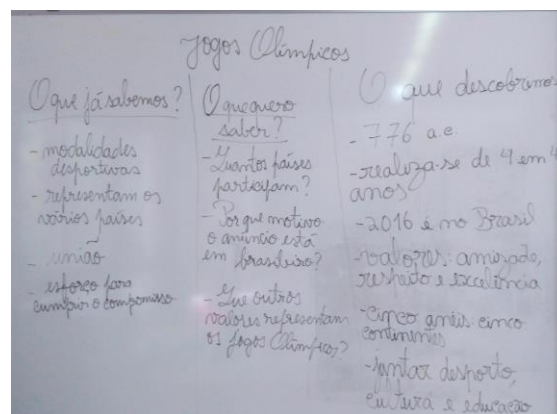 Jogos Olímpicos
O que já sabemos?
- modalidades
desportivas
- representam os
vários países
- união
- esforço para
cumprir o compromisso
O que quero
saber?
- Quantos países
participam?
- Por que motivo
o anúncio está
em brasileiro?
- Que outros
valores representam
os Jogos Olímpicos?
O que descobrimos
- 776 a.c.
- realiza-se de 4 em 4
anos
- 2016 é no Brasil
- valores: amizade,
respeito e excelência
- cinco anéis: cinco
continentes
- juntar desporto,
cultura e educação